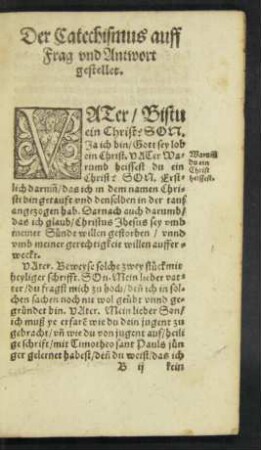 Der Catechismus auff
Frag vnd Antwort
gestellet.
VATer / Bistu
ein Christ? SON.
Ja ich bin / Gott sey lob
ein Christ. VATer Wa-
rumb heissest du ein
Christ? SON. Erst-
lich darum̄ / das ich in dem namen Chri-
sti bin getaufft vnd denselben in der tauff
angezogen hab. Darnach auch darumb /
das ich glaub / Christus Jhesus sey vmb
meiner Sünde willen gestorben / vnnd
vmb meiner gerechtigkeit willen auffer-
weckt.
Warumb
du ein
Christ
heissest.
VAter. Beweyse solche zwey stück mit
heyliger schrifft. SOn. Mein lieber vat-
ter / du fragst mich zu hoch / deñ ich in sol-
chen sachen noch nit wol geübt vnnd ge-
gründet bin. VAter. Mein lieber Son /
ich muß ye erfarē wie du dein jugent zu
gebracht / vñ wie du von jugent auf / heili
ge schrifft / mit Timotheo sant Pauls jün
ger gelernet habest / deñ du weist / das ich
B ij kein